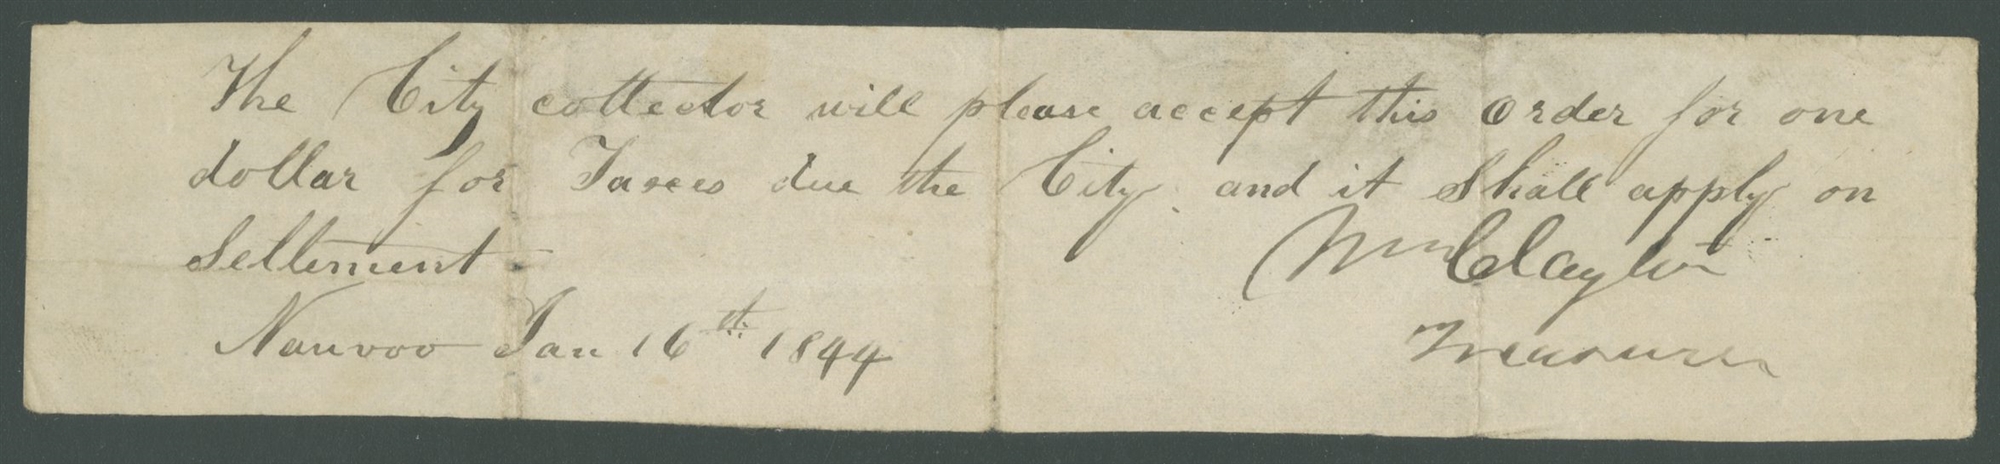 The City collector will please accept this order for one
dollar for Taxes due the City and it shall apply on
Settlement
Wm Clayton
Nauvoo Jan 16th 1844
Treasurer